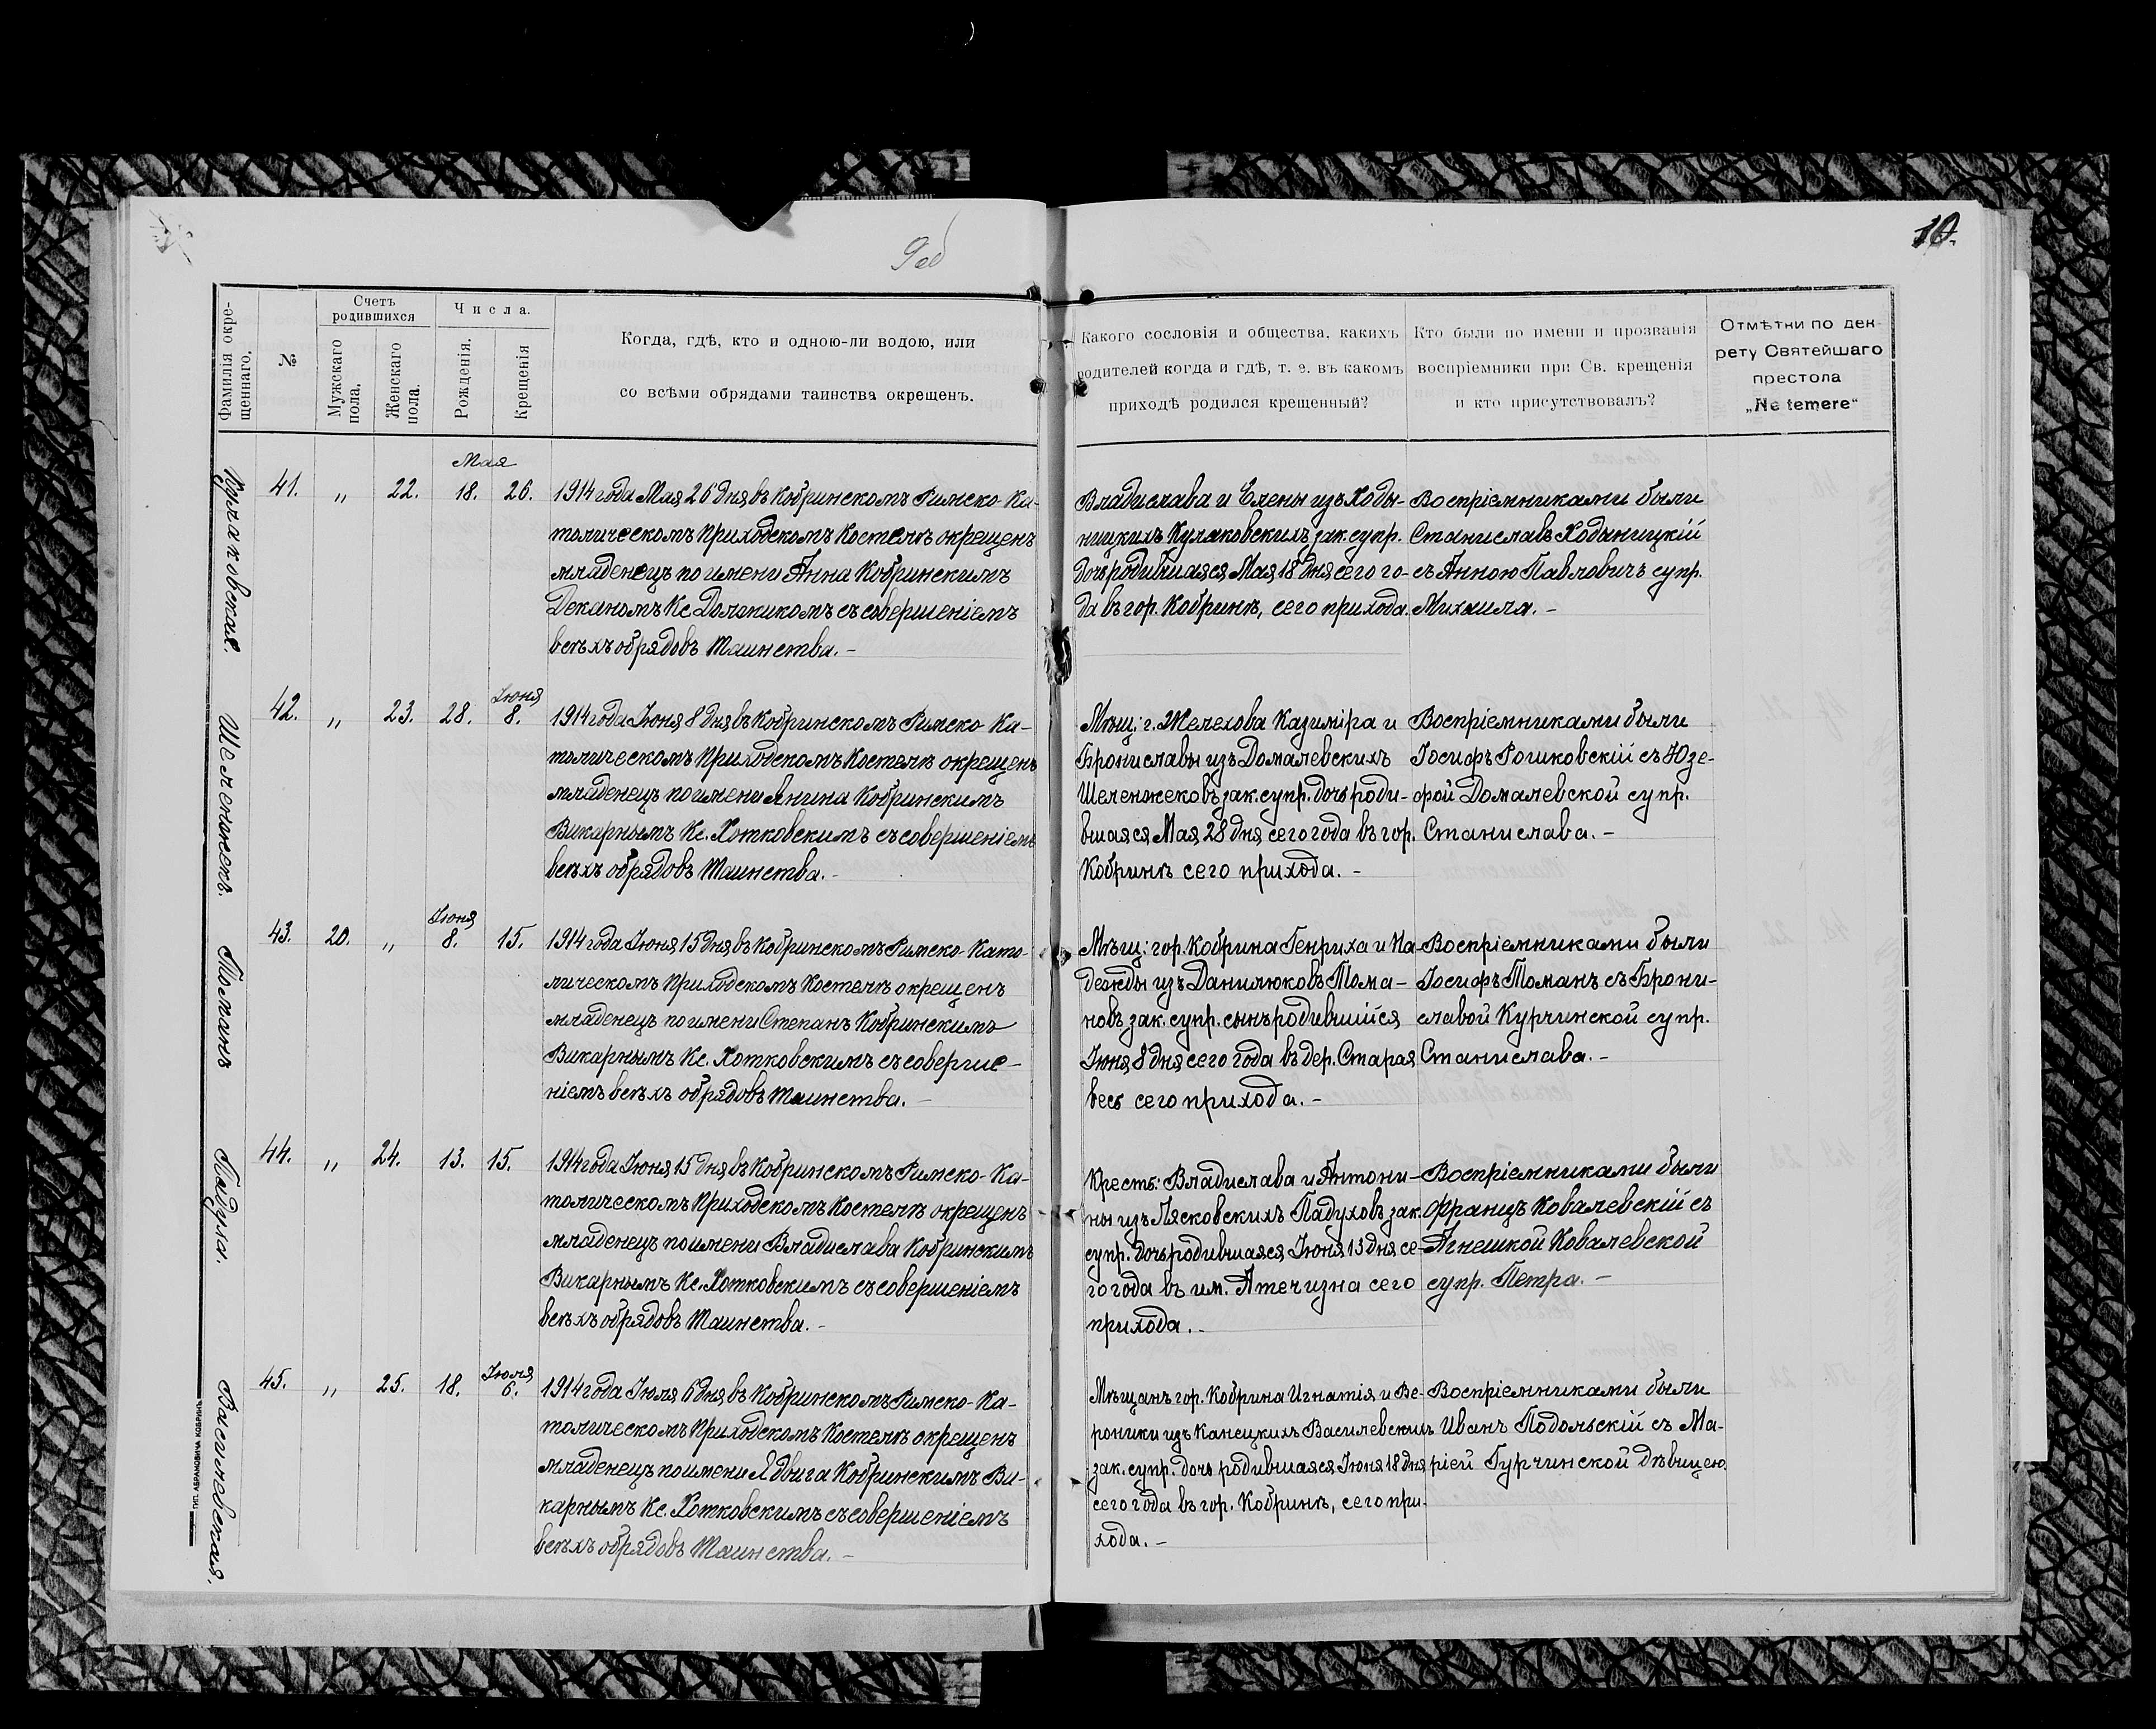 9об
10.
Фамилія окре-
щеннаго.
№
Счетъ
родившихся
Мужскаго
пола.
Женскаго
пола.
Числа.
Рожденія.
Крещенія
Когда, гдѣ, кто и одною-ли водою, или
со всѣми обрядами таинства окрещенъ.
Какого сословія и общества, какихъ
родителей когда и гдѣ, т. е. въ какомъ
приходѣ родился крещенный?
Кто были по имени и прозванія
воспріемники при Св. крещенія
и кто присутствовалъ?
Отмѣтки по дек-
рету Святейшаго
престола
„Ne temere“
Кулаковская.
41.
„
22.
Мая
18.
26.
1914 года Мая 26 дня въ Кобринскомъ Римско-Ка-
толическомъ Приходскомъ Костелѣ окрещенъ
младенецъ по имени Анна Кобринскимъ
Деканомъ Кс. Долэникомъ съ совершеніемъ
всѣхъ обрядовъ Таинства. -
Владислава и Елены изъ Ходы-
ницкихъ Кулаковскихъ зак. супр.
дочь родившаяся Мая 18 дня сего го-
да въ гор. Кобринѣ, сего прихода.
Воспріемниками были
Станиславъ Ходыницкій
съ Анною Павловичъ супр.
Михаила. -
Шеленжекъ.
42.
„
23.
28.
Іюня
8.
1914 года Іюня 8 дня въ Кобринскомъ Римско-Ка-
толическомъ Приходскомъ Костелѣ окрещенъ
младенецъ по имени Янина Кобринскимъ
Викарнымъ Кс. Хотковскимъ съ совершеніемъ
всѣхъ обрядовъ Таинства. -
Мѣщ: г. Желехова Казиміра и
Брониславы изъ Домалевскихъ
Шеленжековъ зак. супр. дочь роди-
вшаяся Мая 28 дня сего года въ гор.
Кобринѣ сего прихода. -
Воспріемниками были
Іосифъ Рошковскій съ Юзе-
фой Домалевской супр.
Станислава. -
Томанъ
43.
20.
„
Іюня
8.
15.
1914 года Іюня 15 дня въ Кобринскомъ Римско-Като-
лическомъ Приходскомъ Костелѣ окрещенъ
младенецъ по имени Степанъ Кобринскимъ
Викарнымъ Кс. Хотковскимъ съ соверше-
ніемъ всѣхъ обрядовъ Таинства. -
Мѣщ: гор. Кобрина Генриха и На-
дежды изъ Данилюковъ Тома-
новъ зак. супр. сынъ родившійся
Іюня 8 дня сего года въ дер. Старая
весь сего прихода. -
Воспріемниками были
Іосифъ Томанъ съ Брони-
славой Курчинской супр.
Станислава. -
Падухъ.
44.
„
24.
13.
15.
1914 года Іюня 15 дня въ Кобринскомъ Римско-Ка-
толическомъ Приходскомъ Костелѣ окрещенъ
младенецъ по имени Владислава Кобринскимъ
Викарнымъ Кс. Хотковскимъ съ совершеніемъ
всѣхъ обрядовъ Таинства. -
Кресть: Владислава и Антони-
ны изъ Лясковскихъ Падуховъ зак.
супр. дочь родившаяся Іюня 13 дня се-
го года въ им. Атечизна сего
прихода. -
Воспріемниками были
Францъ Ковалевскій съ
Агнешкой Ковалевской
супр. Петра. -
Василевская.
45.
„
25.
18.
Іюля
6.
1914 года Іюля 6 дня въ Кобринскомъ Римско-Ка-
толическомъ Приходскомъ Костелѣ окрещенъ
младенецъ по имени Ядвига Кобринскимъ Ви-
карнымъ Кс. Хотковскимъ съ совершеніемъ
всѣхъ обрядовъ Таинства. -
Мѣщанъ гор. Кобрина Игнатія и Ве-
роники изъ Канецкихъ Василевскихъ
зак. супр. дочь родившаяся Іюня 18 дня
сего года въ гор. Кобринѣ, сего при-
хода. -
Воспріемниками были
Иванъ Подольскій съ Ма-
ріей Гурчинской дѣвицею.
ТИП. АБРАМОВИЧА КОБРИНЪ